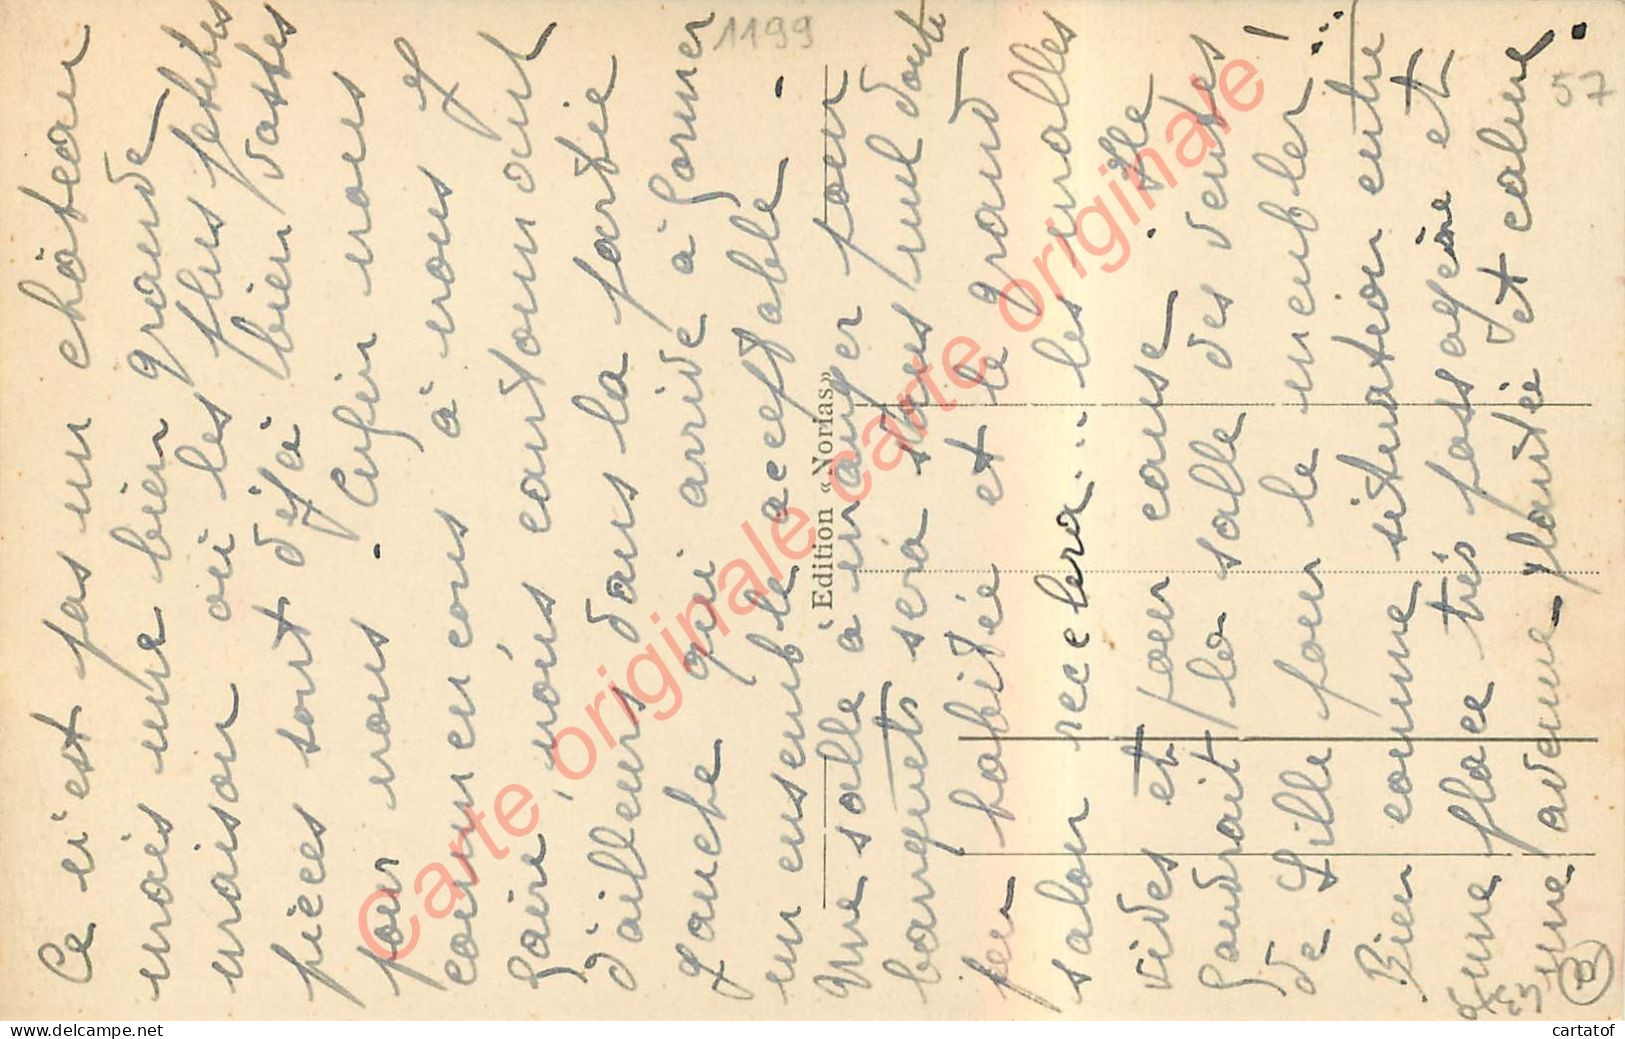 Ce n'est pas un château
mais une bien grande
maison où les plus petites
pièces sont déjà bien vastes
pour nous. Enfin nous
commencons à nous y
faire, nous cantonnant
d'ailleurs dans la partie
gauche qui arrive à former
un ensemble acceptable.
Une salle à manger pour
banquets sera sans nul doute
peu habitée et le grand
salon recelera... les malles
vides et pour cause. Il
faudrait la salle des ventes
de Lille pour le meubler!
Bien comme situation entre...
une place très passagère et
une avenue plantée et calme.
Edition « Norias»
1199
57
23
Carte originale carte originale carte originale !
www.delcampe.net
cartatof